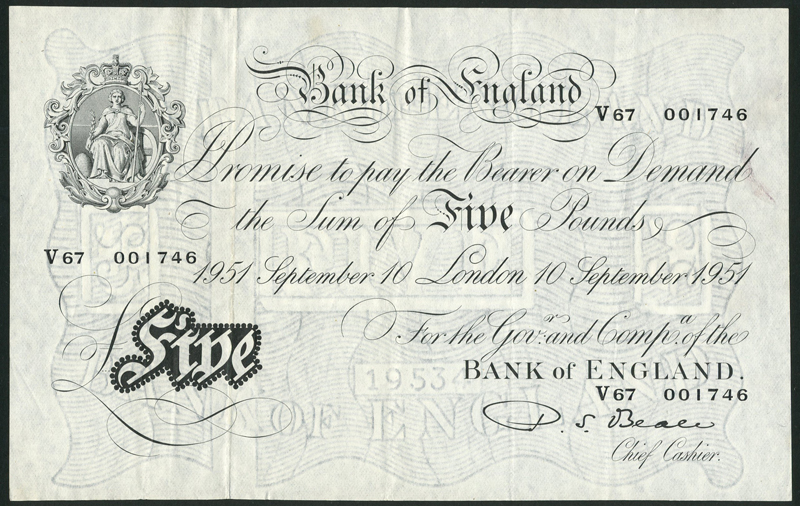 Bank of England
V67 001746
I Promise to pay the Bearer on Demand
the Sum of Five Pounds
V67 001746
1951 September 10 London 10 September 1951
For the Govr. and Compa. of the
BANK of ENGLAND.
£Five
19534
V67 001746
OF ENGLAND
D. S. Beale
Chief Cashier.